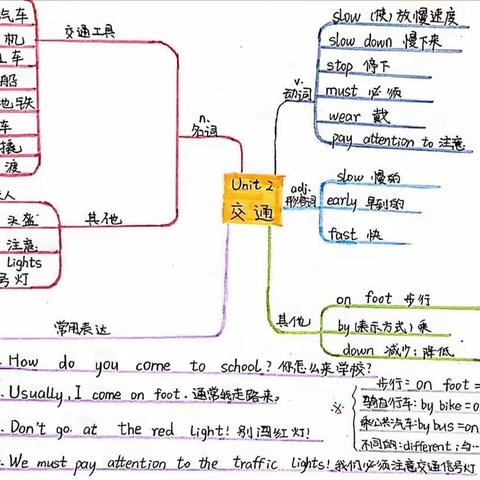 汽车
机
车
船
地铁
车
撬
渡
交通工具
n.
名词
人
头盔
注意
lights
号灯
其他
Unit 2
交通
v.
动词
slow (使)放慢速度
slow down 慢下来
stop 停下
must 必须
wear 戴
pay attention to 注意
adj.
形容词
slow 慢的
early 早到的
fast 快
其他
on foot 步行
by (表示方式)乘
down 减少;降低
常用表达
. How do you come to school? 你怎么来学校?
. Usually, I come on foot. 通常我走路来。
. Don't go at the red light! 别闯红灯!
. We must pay attention to the traffic lights! 我们必须注意交通信号灯
※
步行: on foot =
骑自行车: by bike = o
乘公共汽车: by bus = on
不同的: different; 与…